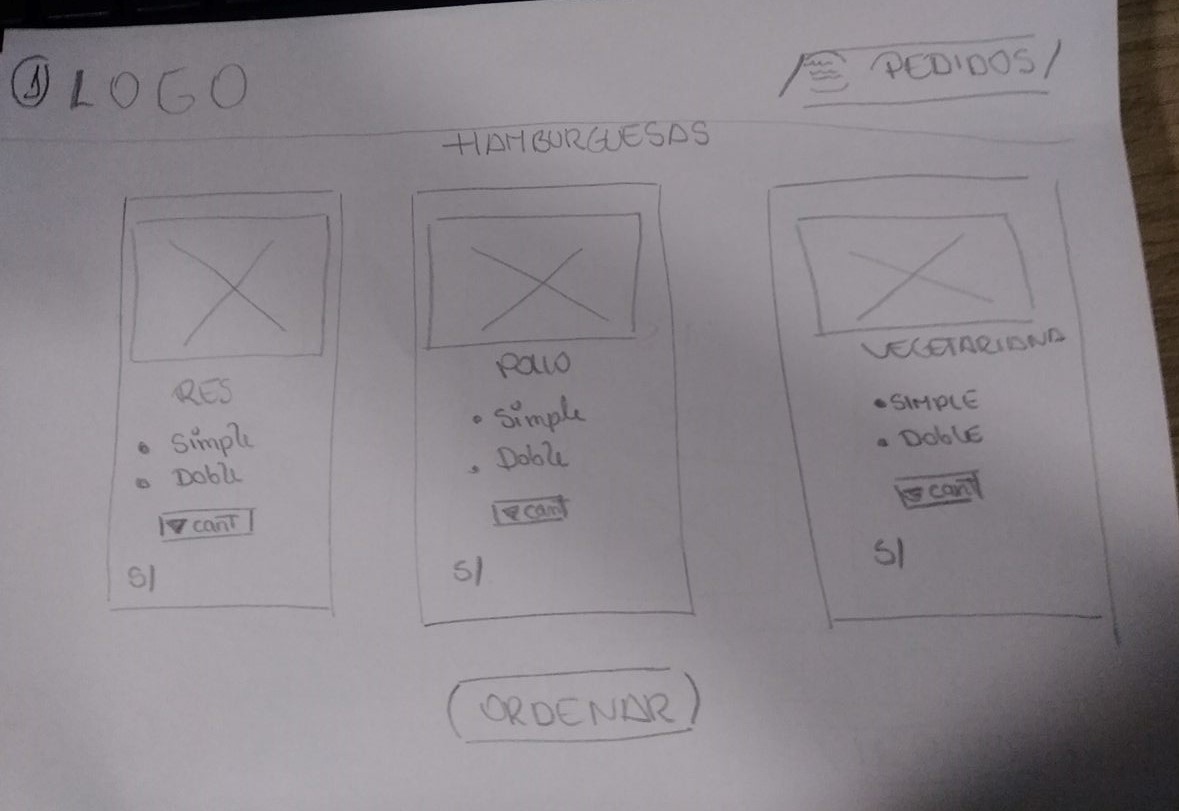 1 LOGO
PEDIDOS
HAMBURGUESAS
RES
• Simple
• Doble
▼ canT
S/
POLLO
• Simple
• Doble
▼ canT
S/
VEGETARIANA
• SIMPLE
• DOBLE
▼ canT
S/
ORDENAR